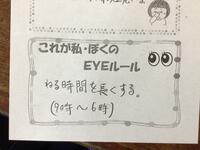 これが私・ぼくの
EYEルール
ねる時間を長くする。
(9時〜6時)